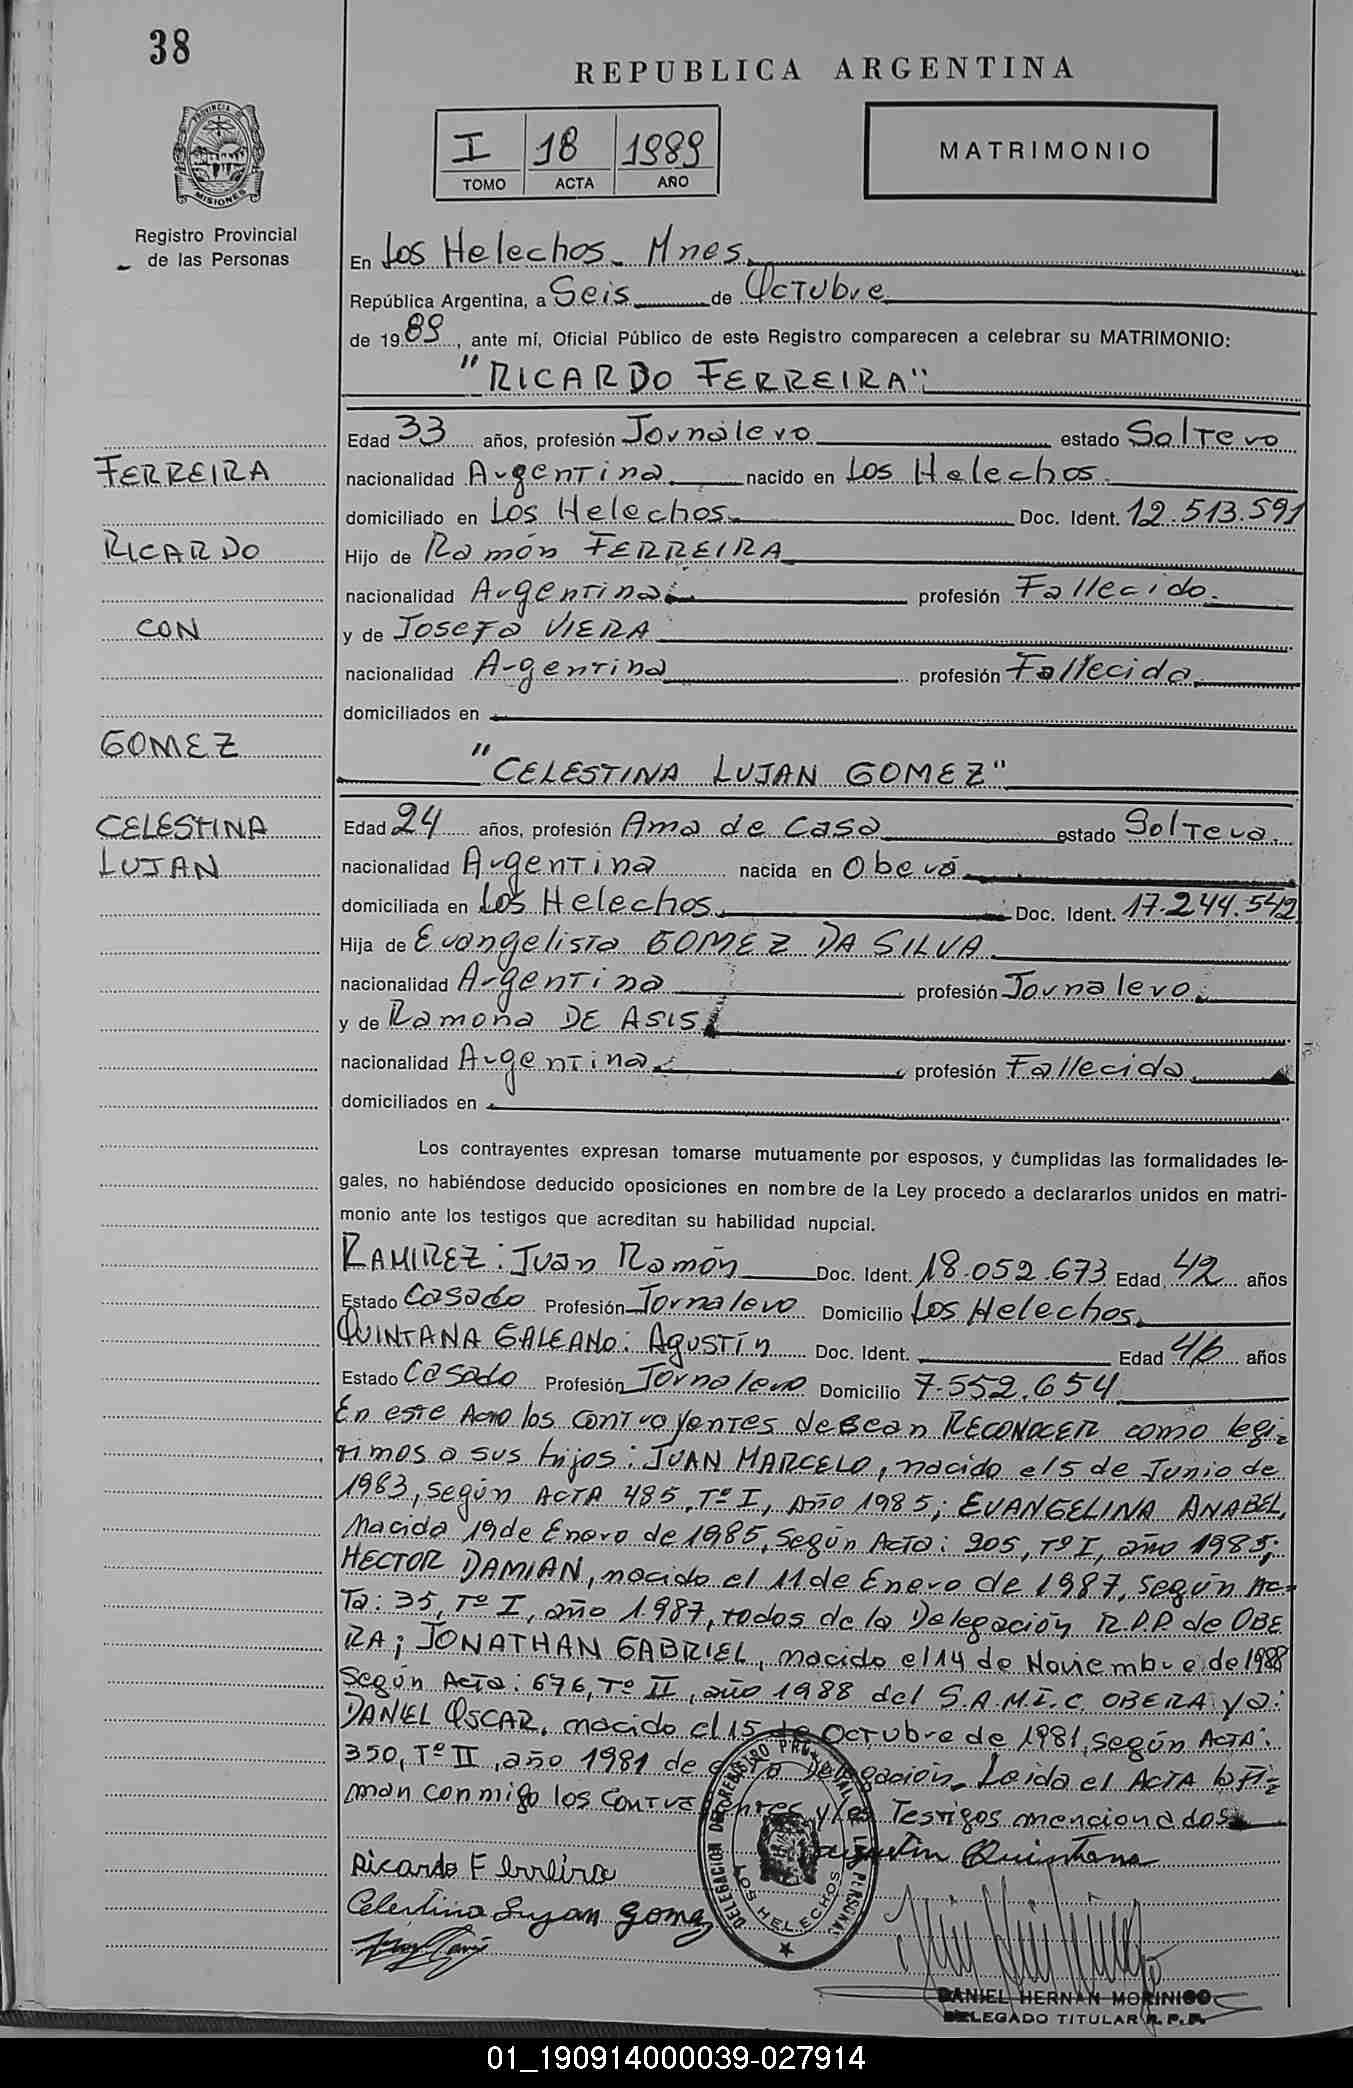 38
REPUBLICA ARGENTINA
I 18 1989
TOMO ACTA AÑO
MATRIMONIO
PROVINCIA
MISIONES
Registro Provincial
de las Personas
En Los Helechos - Mnes.
República Argentina, a Seis de Octubre
de 1989, ante mí, Oficial Público de este Registro comparecen a celebrar su MATRIMONIO:
"RICARDO FERREIRA"
Edad 33 años, profesión Jornalero estado Soltero
FERREIRA
nacionalidad Argentina nacido en Los Helechos.
domiciliado en Los Helechos. Doc. Ident. 12.513.591
RICARDO
Hijo de Ramón FERREIRA
nacionalidad Argentina. profesión Fallecido.
CON
y de Josefa VIERA
nacionalidad Argentina profesión Fallecida.
domiciliados en
GOMEZ
"CELESTINA LUJAN GOMEZ"
CELESTINA
Edad 24 años, profesión Ama de Casa estado Soltera.
LUJAN
nacionalidad Argentina nacida en Oberá
domiciliada en Los Helechos. Doc. Ident. 17.244.542
Hija de Evangelista GOMEZ DA SILVA
nacionalidad Argentina profesión Jornalero.
y de Ramona DE ASIS
nacionalidad Argentina. profesión Fallecida
domiciliados en
Los contrayentes expresan tomarse mutuamente por esposos, y cumplidas las formalidades le-
gales, no habiéndose deducido oposiciones en nombre de la Ley procedo a declararlos unidos en matri-
monio ante los testigos que acreditan su habilidad nupcial.
RAMIREZ: Juan Ramón Doc. Ident. 18.052.673 Edad 42 años
Estado Casado Profesión Jornalero Domicilio Los Helechos.
QUINTANA GALEANO: Agustín Doc. Ident. Edad 46 años
Estado Casado Profesión Jornalero Domicilio 7.552.654
En este Acto los contrayentes desean RECONOCER como legi-
timos a sus hijos: JUAN MARCELO, nacido el 5 de Junio de
1983, según ACTA 485, Tº I, año 1985; EVANGELINA ANABEL,
Nacida 19 de Enero de 1985, según Acta: 205, Tº I, año 1985;
HECTOR DAMIAN, nacido el 11 de Enero de 1987, según Ac-
Ta: 35, Tº I, año 1.987, todos de la Delegación R.P.P. de OBE
RA; JONATHAN GABRIEL, nacido el 14 de Noviembre de 1988
según Acta: 676, Tº II, año 1988 del S.A.M.I.C. OBERA y a:
DANIEL OSCAR, nacido el 15 de Octubre de 1981, según ACTA:
350, Tº II, año 1981 de esta Delegación. Leida el ACTA la fir-
man conmigo los contrayentes y los Testigos mencionados
Agustin Quintana
Ricardo Ferreira
Celestina Lujan Gomez
DELEGACION DEL REGISTRO PROVINCIAL DE LAS PERSONAS
LOS HELECHOS
DANIEL HERNAN MORINIGO
DELEGADO TITULAR R. P. P.
01_190914000039-027914